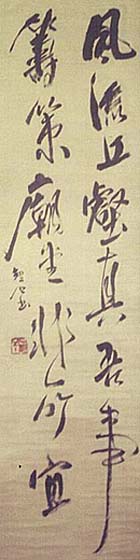 風流丘壑真吾事
籌策廟堂非所宜